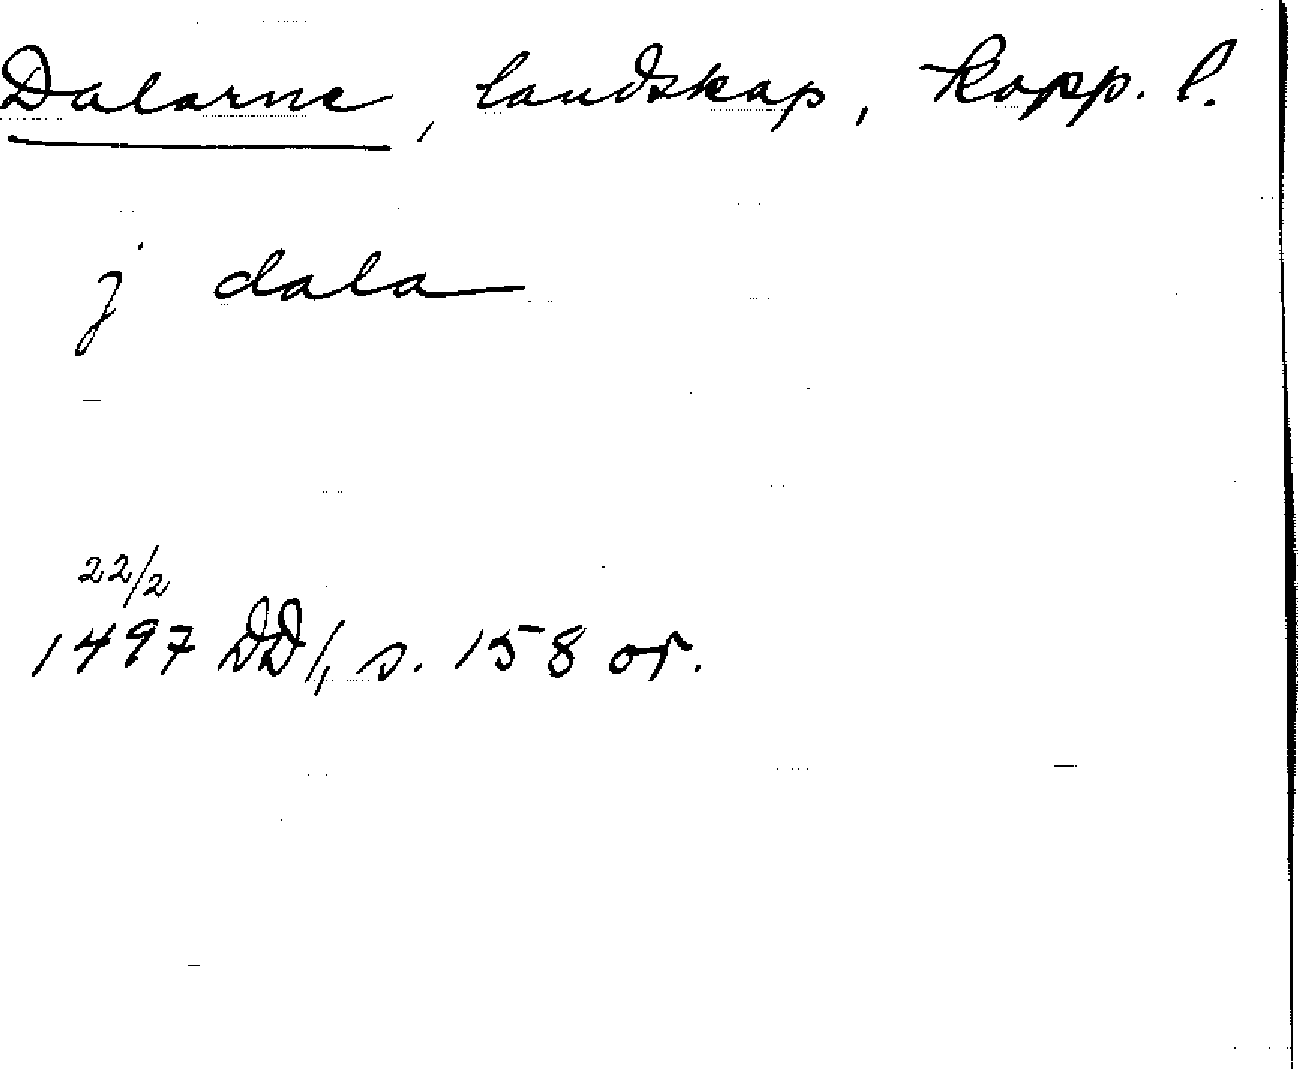 Dalarne, landskap, Kopp. l.
j dala
22/2
1497 DD/1, s. 158 or.